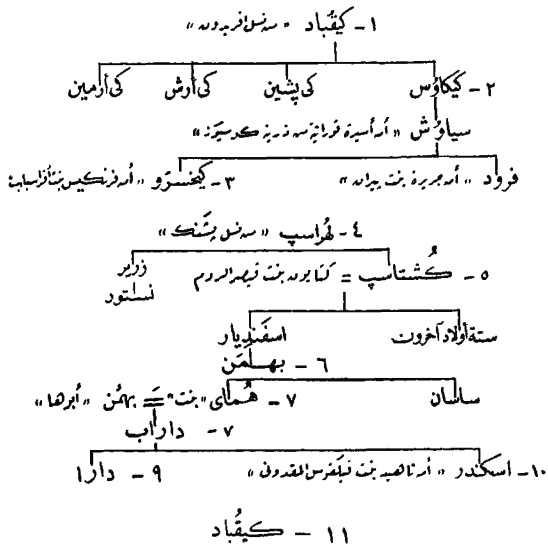 ١- كيقُباد «من نسل افريدون»
٢- كيكاوُس كى پشين كى أرش كى أرمين
سياوُش «أمه أسيرة تورانية من ذرية كرسيوز»
فرود «أمه جريرة بنت پيران» ٣- كيخسرَو «أمه فرنگيس بنت أفراسياب»
٤- لهُراسپ «من نسل پشَنگ»
٥- گُشتاسپ = كتايون بنت قيصر الروم زرير
نستور
ستة أولاد آخرون اسفَنديار
٦- بهمَن
ساسان ٧- هُماى «بنت» = بهمُن «أبوها»
٧- داراب
١٠- اسكندر «أمه ناهيد بنت فيلقوس المقدونى» ٩- دارا
١١- كيقُباد